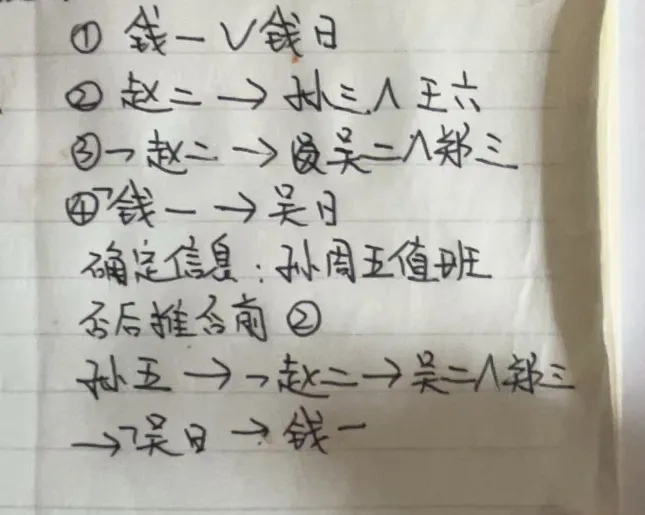 ① 钱一∨钱日
② 赵二→孙三∧王六
③¬赵二→吴二∧郑三
④¬钱一→吴日
确定信息:孙周五值班
否后推否前②
孙五→¬赵二→吴二∧郑三
→¬吴日→钱一